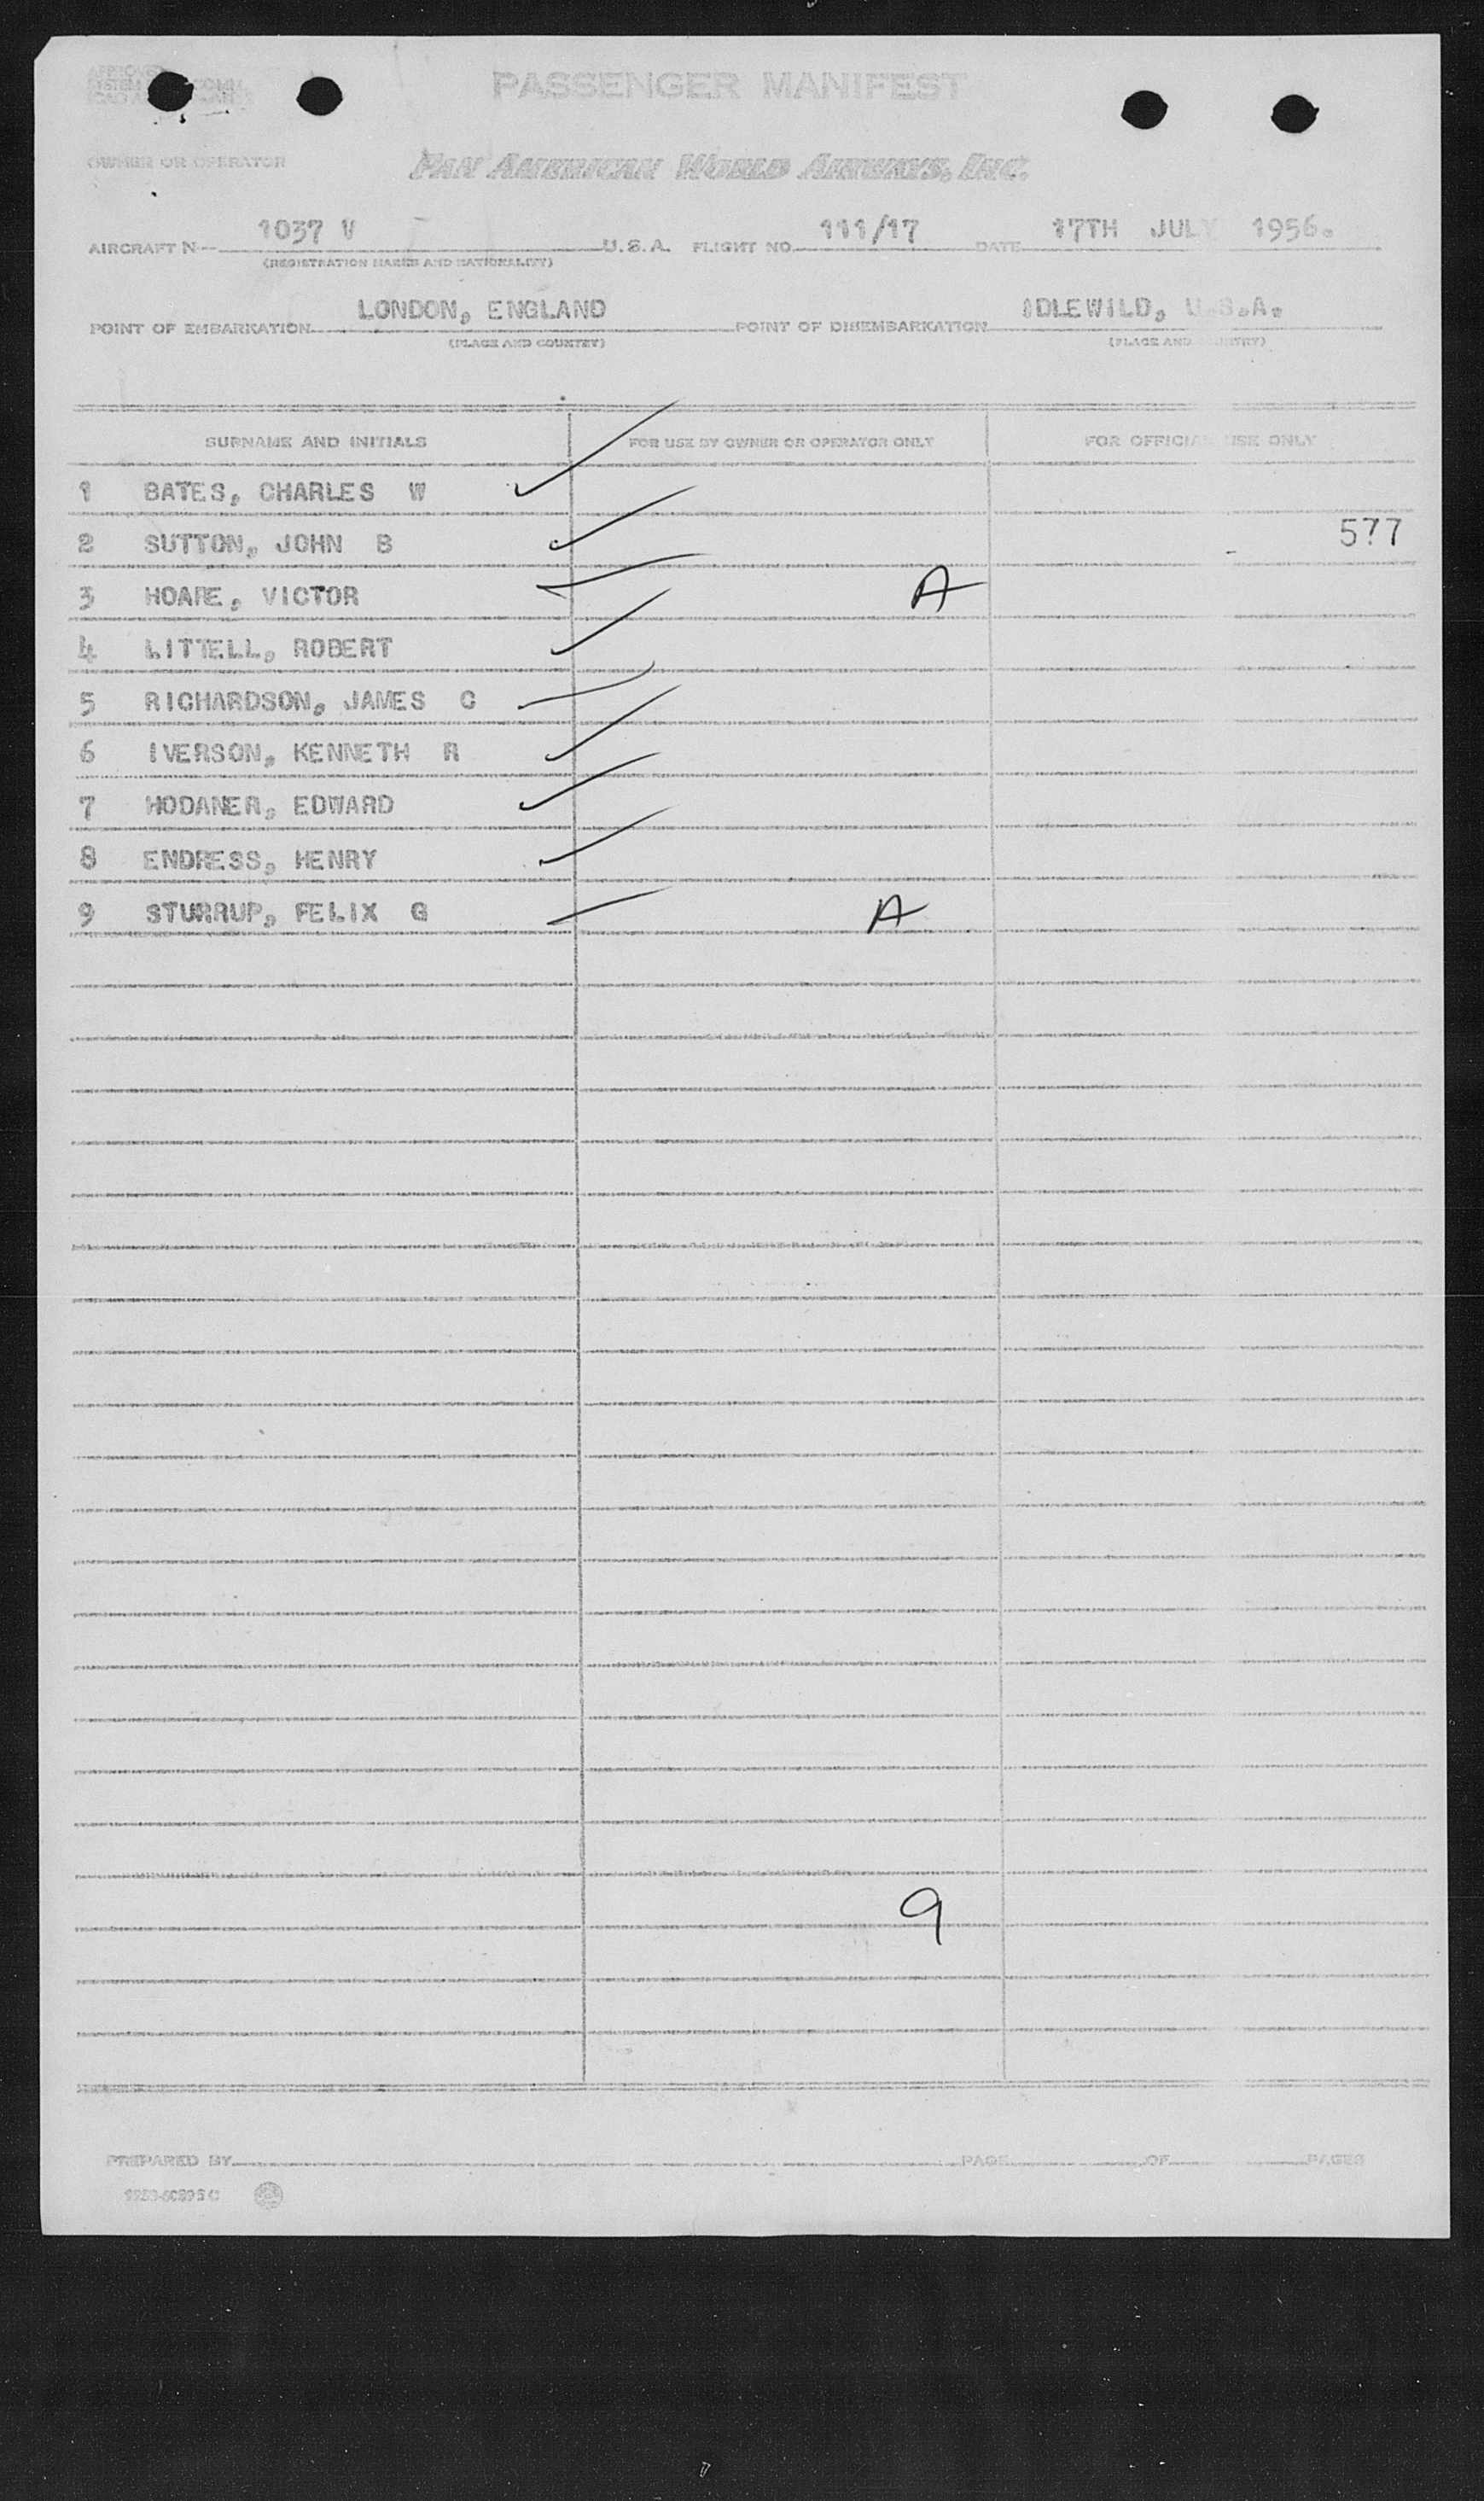 PASSENGER MANIFEST
OWNER OR OPERATOR PAN AMERICAN WORLD AIRWAYS, INC.
AIRCRAFT N- 1037 V U.S.A. FLIGHT NO. 111/17 DATE 17TH JULY 1956.
(REGISTRATION MARKS AND NATIONALITY)
POINT OF EMBARKATION LONDON, ENGLAND POINT OF DISEMBARKATION IDLEWILD, U.S.A.
(PLACE AND COUNTRY) (PLACE AND COUNTRY)
SURNAME AND INITIALS FOR USE BY OWNER OR OPERATOR ONLY FOR OFFICIAL USE ONLY
1 BATES, CHARLES W
2 SUTTON, JOHN B 577
3 HOARE, VICTOR A
4 LITTELL, ROBERT
5 RICHARDSON, JAMES C
6 IVERSON, KENNETH R
7 HODANER, EDWARD
8 ENDRESS, HENRY
9 STURRUP, FELIX G A
9
PREPARED BY PAGE OF PAGES